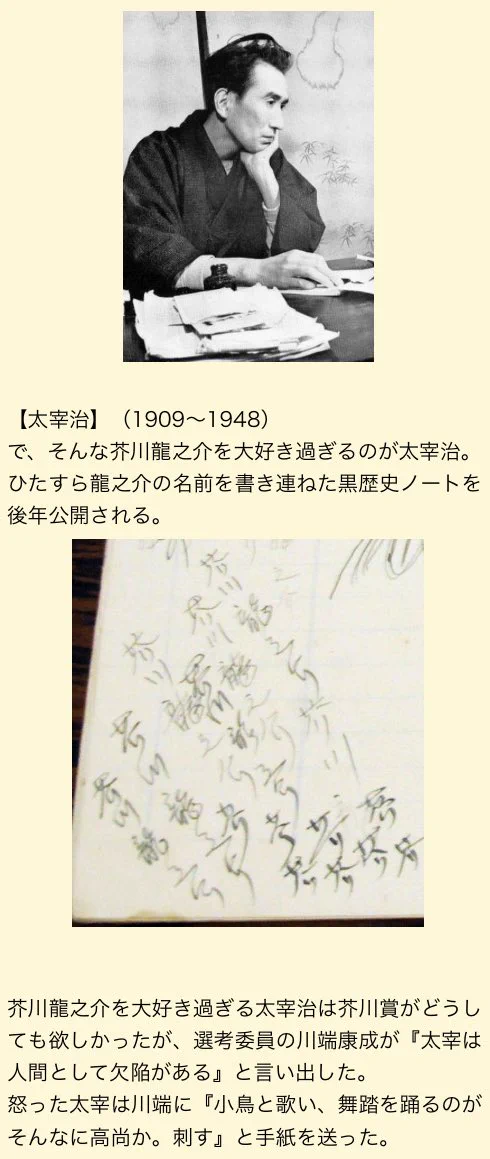 【太宰治】（1909〜1948）
で、そんな芥川龍之介を大好き過ぎるのが太宰治。
ひたすら龍之介の名前を書き連ねた黒歴史ノートを
後年公開される。
芥川龍之介
芥川龍之介
芥川龍之介
芥川
芥川
芥川龍之介を大好き過ぎる太宰治は芥川賞がどうし
ても欲しかったが、選考委員の川端康成が『太宰は
人間として欠陥がある』と言い出した。
怒った太宰は川端に『小鳥と歌い、舞踏を踊るのが
そんなに高尚か。刺す』と手紙を送った。